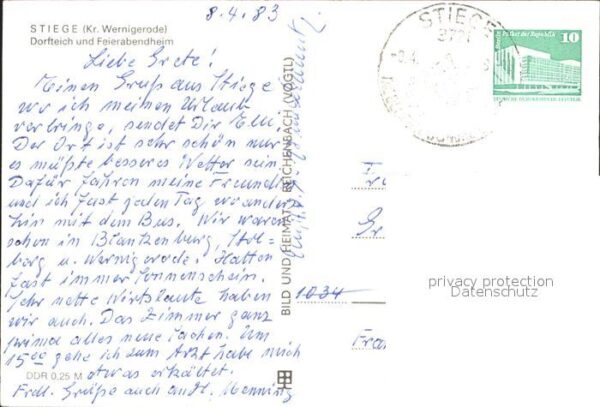 8.4.83
STIEGE (Kr. Wernigerode)
Dorfteich und Feierabendheim
Liebe Grete!
Einen Gruß aus Stiege
wo ich meinen Urlaub
verbringe, sendet Dir Elli.
Der Ort ist sehr schön nur
es müßte besseres Wetter sein
Dafür fahren meine Freundin
und ich fast jeden Tag wo anders
hin mit dem Bus. Wir waren
schon in Blankenburg, Stol=
berg u. Wernigerode. Hatten
fast immer Sonnenschein.
Sehr nette Wirtsleute haben
wir auch. Das Zimmer ganz
prima alles neue Sachen. Um
15.00 gehe ich zum Arzt habe mich
etwas erkältet.
Frdl. Grüße auch an
DDR 0,25 M
BILD UND HEIMAT REICHENBACH (VOGTL)
STIEGE
3721
10
Palast der Republik
DEUTSCHE DEMOKRATISCHE REPUBLIK
Fr
Gr
1034
Fra
privacy protection
Datenschutz